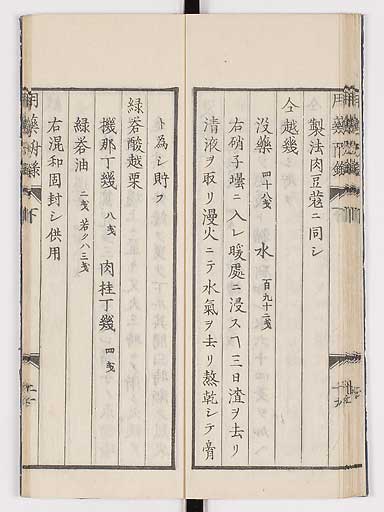 仝 製法肉豆蔻ニ同シ
仝越幾
沒藥 四十八戔 水 百九十二戔
右硝子壜ニ入レ暖處ニ浸スヿ三日渣ヲ去リ
清液ヲ取リ漫火ニテ水氣ヲ去リ熬乾シテ膏
ト為シ貯フ
綠礬酸越栗
機那丁幾 八戔 肉桂丁幾 四戔
綠礬油 二戔若クハ三戔
右混和固封シ供用